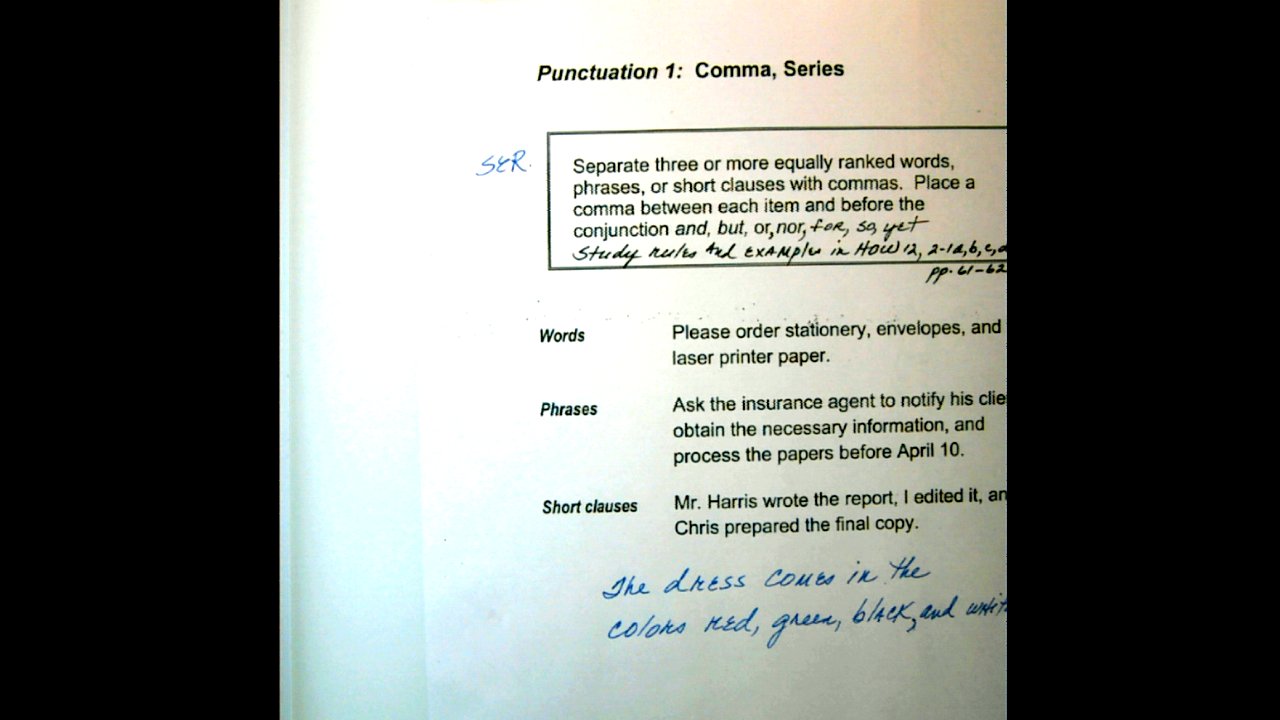 Punctuation 1: Comma, Series
SER.
Separate three or more equally ranked words,
phrases, or short clauses with commas. Place a
comma between each item and before the
conjunction and, but, or, nor, for, so, yet
Study rules and examples in HOW 12, 2-1a,b,c,
pp. 61-62
Words Please order stationery, envelopes, and
laser printer paper.
Phrases Ask the insurance agent to notify his
obtain the necessary information, and
process the papers before April 10.
Short clauses Mr. Harris wrote the report, I edited it,
Chris prepared the final copy.
The dress comes in the
colors red, green, black, and